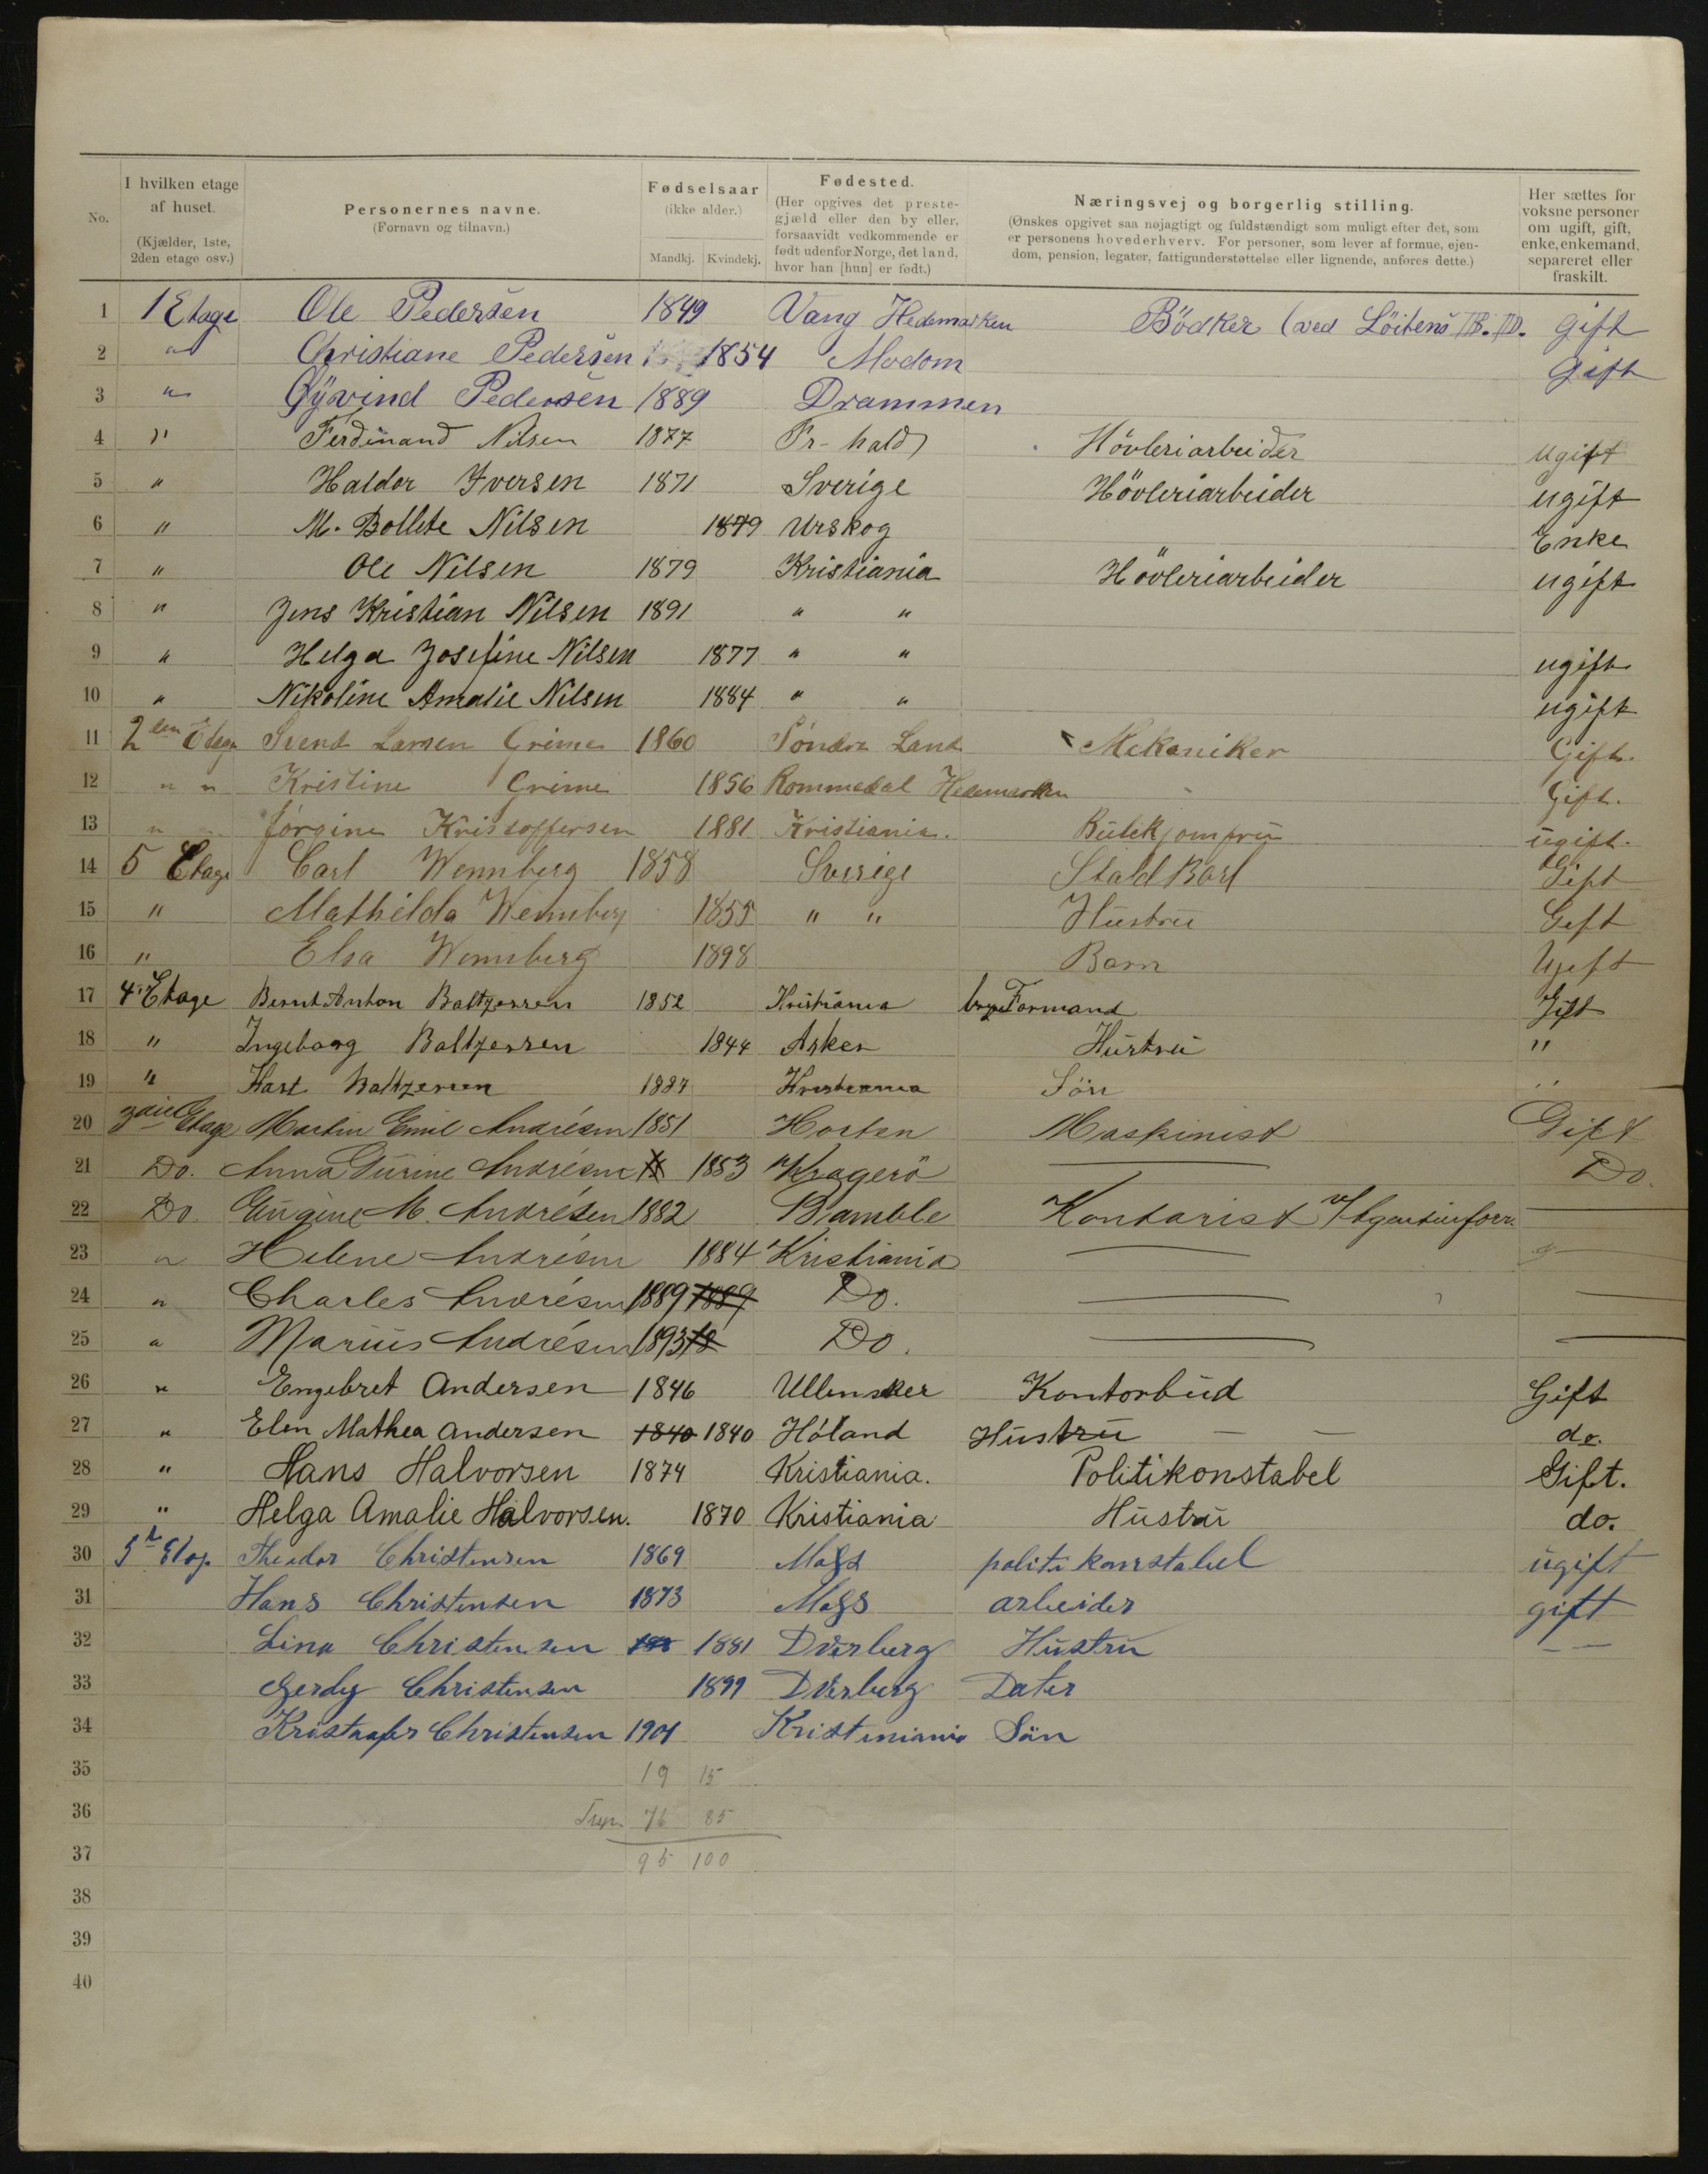 No. | I hvilken etage af huset. (Kjælder, 1ste, 2den etage osv.) | Personernes navne. (Fornavn og tilnavn.) | Fødselsaar (ikke alder.) Mandkj. Kvindekj. | Fødested. (Her opgives det prestegjæld eller den by eller, forsaavidt vedkommende er født udenfor Norge, det land, hvor han [hun] er født.) | Næringsvej og borgerlig stilling. (Ønskes opgivet saa nøjagtigt og fuldstændigt som muligt efter det, som er personens hovederhverv. For personer, som lever af formue, ejendom, pension, legater, fattigunderstøttelse eller lignende, anføres dette.) | Her sættes for voksne personer om ugift, gift, enke, enkemand, separeret eller fraskilt.
1 1 Etage Ole Pedersen 1849 Vang Hedemarken Bödker (ved Löitens B. D. gift
2 " Christiane Pedersen 1854 Modom gift
3 " Øyvind Pedersen 1889 Drammen
4 " Ferdinand Nilsen 1877 Fr-hald Hövleriarbeider ugift
5 " Haldor Iversen 1871 Sverige Hövleriarbeider ugift
6 " M. Bollete Nilsen 1849 Urskog Enke
7 " Ole Nilsen 1879 Kristiania Hövleriarbeider ugift
8 " Jens Kristian Nilsen 1891 " "
9 " Helga Josefine Nilsen 1877 " " ugift
10 " Nikoline Amalie Nilsen 1884 " " ugift
11 2den Etage Svend Larsen Grime 1860 Söndre Land Mekaniker Gift.
12 " " Kristine Grime 1856 Rommedal Hedemarken Gift.
13 " Jörgine Kristoffersen 1881 Kristiania. Butikjomfru ugift.
14 5 Etage Carl Wennberg 1858 Sverige Stald Karl Gift
15 " Mathilda Wennberg 1855 " " Hustru Gift
16 " Elsa Wennberg 1898 Barn Ugift
17 4. Etage Bernt Anton Baltzersen 1852 Kristiania Formand Gift
18 " Ingeborg Baltzersen 1844 Asker Hustru "
19 " Baltzersen 1887 Kristiania Sön "
20 3die Etage Martin Emil Andrésen 1851 Horten Maskinist Gift
21 Do. Anna Gurine Andrésen 1853 Kragerö — Do.
22 Do. Eugine M. Andrésen 1882 Bamble Kontorist v/ Agenturforr. —
23 " Helene Andrésen 1884 Kristiania — —
24 " Charles Andrésen 1889 1889 Do. — —
25 " Marius Andrésen 1893 18 Do. — —
26 " Engebret Andersen 1846 Ullensaker Kontorbud Gift
27 " Elen Mathea Andersen 1840 1840 Höland Hustru — — do.
28 " Hans Halvorsen 1874 Kristiania. Politikonstabel Gift.
29 " Helga Amalie Halvorsen. 1870 Kristiania Hustru do.
30 Theodor Christensen 1869 Moss politi konstabel ugift
31 Hans Christensen 1873 Moss arbeider gift
32 Lina Christensen 188 1881 Dverberg Hustru — —
33 Gerdy Christensen 1899 Dverberg Dater
34 Christensen 1901 Sön
35 19 15
36 76 85
37 95 100
38
39
40